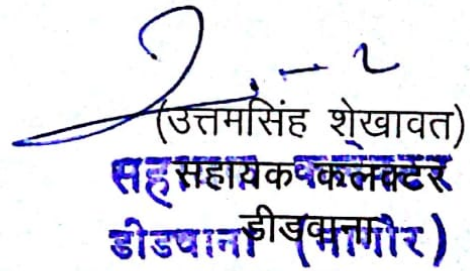 (उत्तमसिंह शेखावत)
सहायक कलक्टर
डीडवाना
सहायक कलेक्टर
डीडवाना (नागौर)